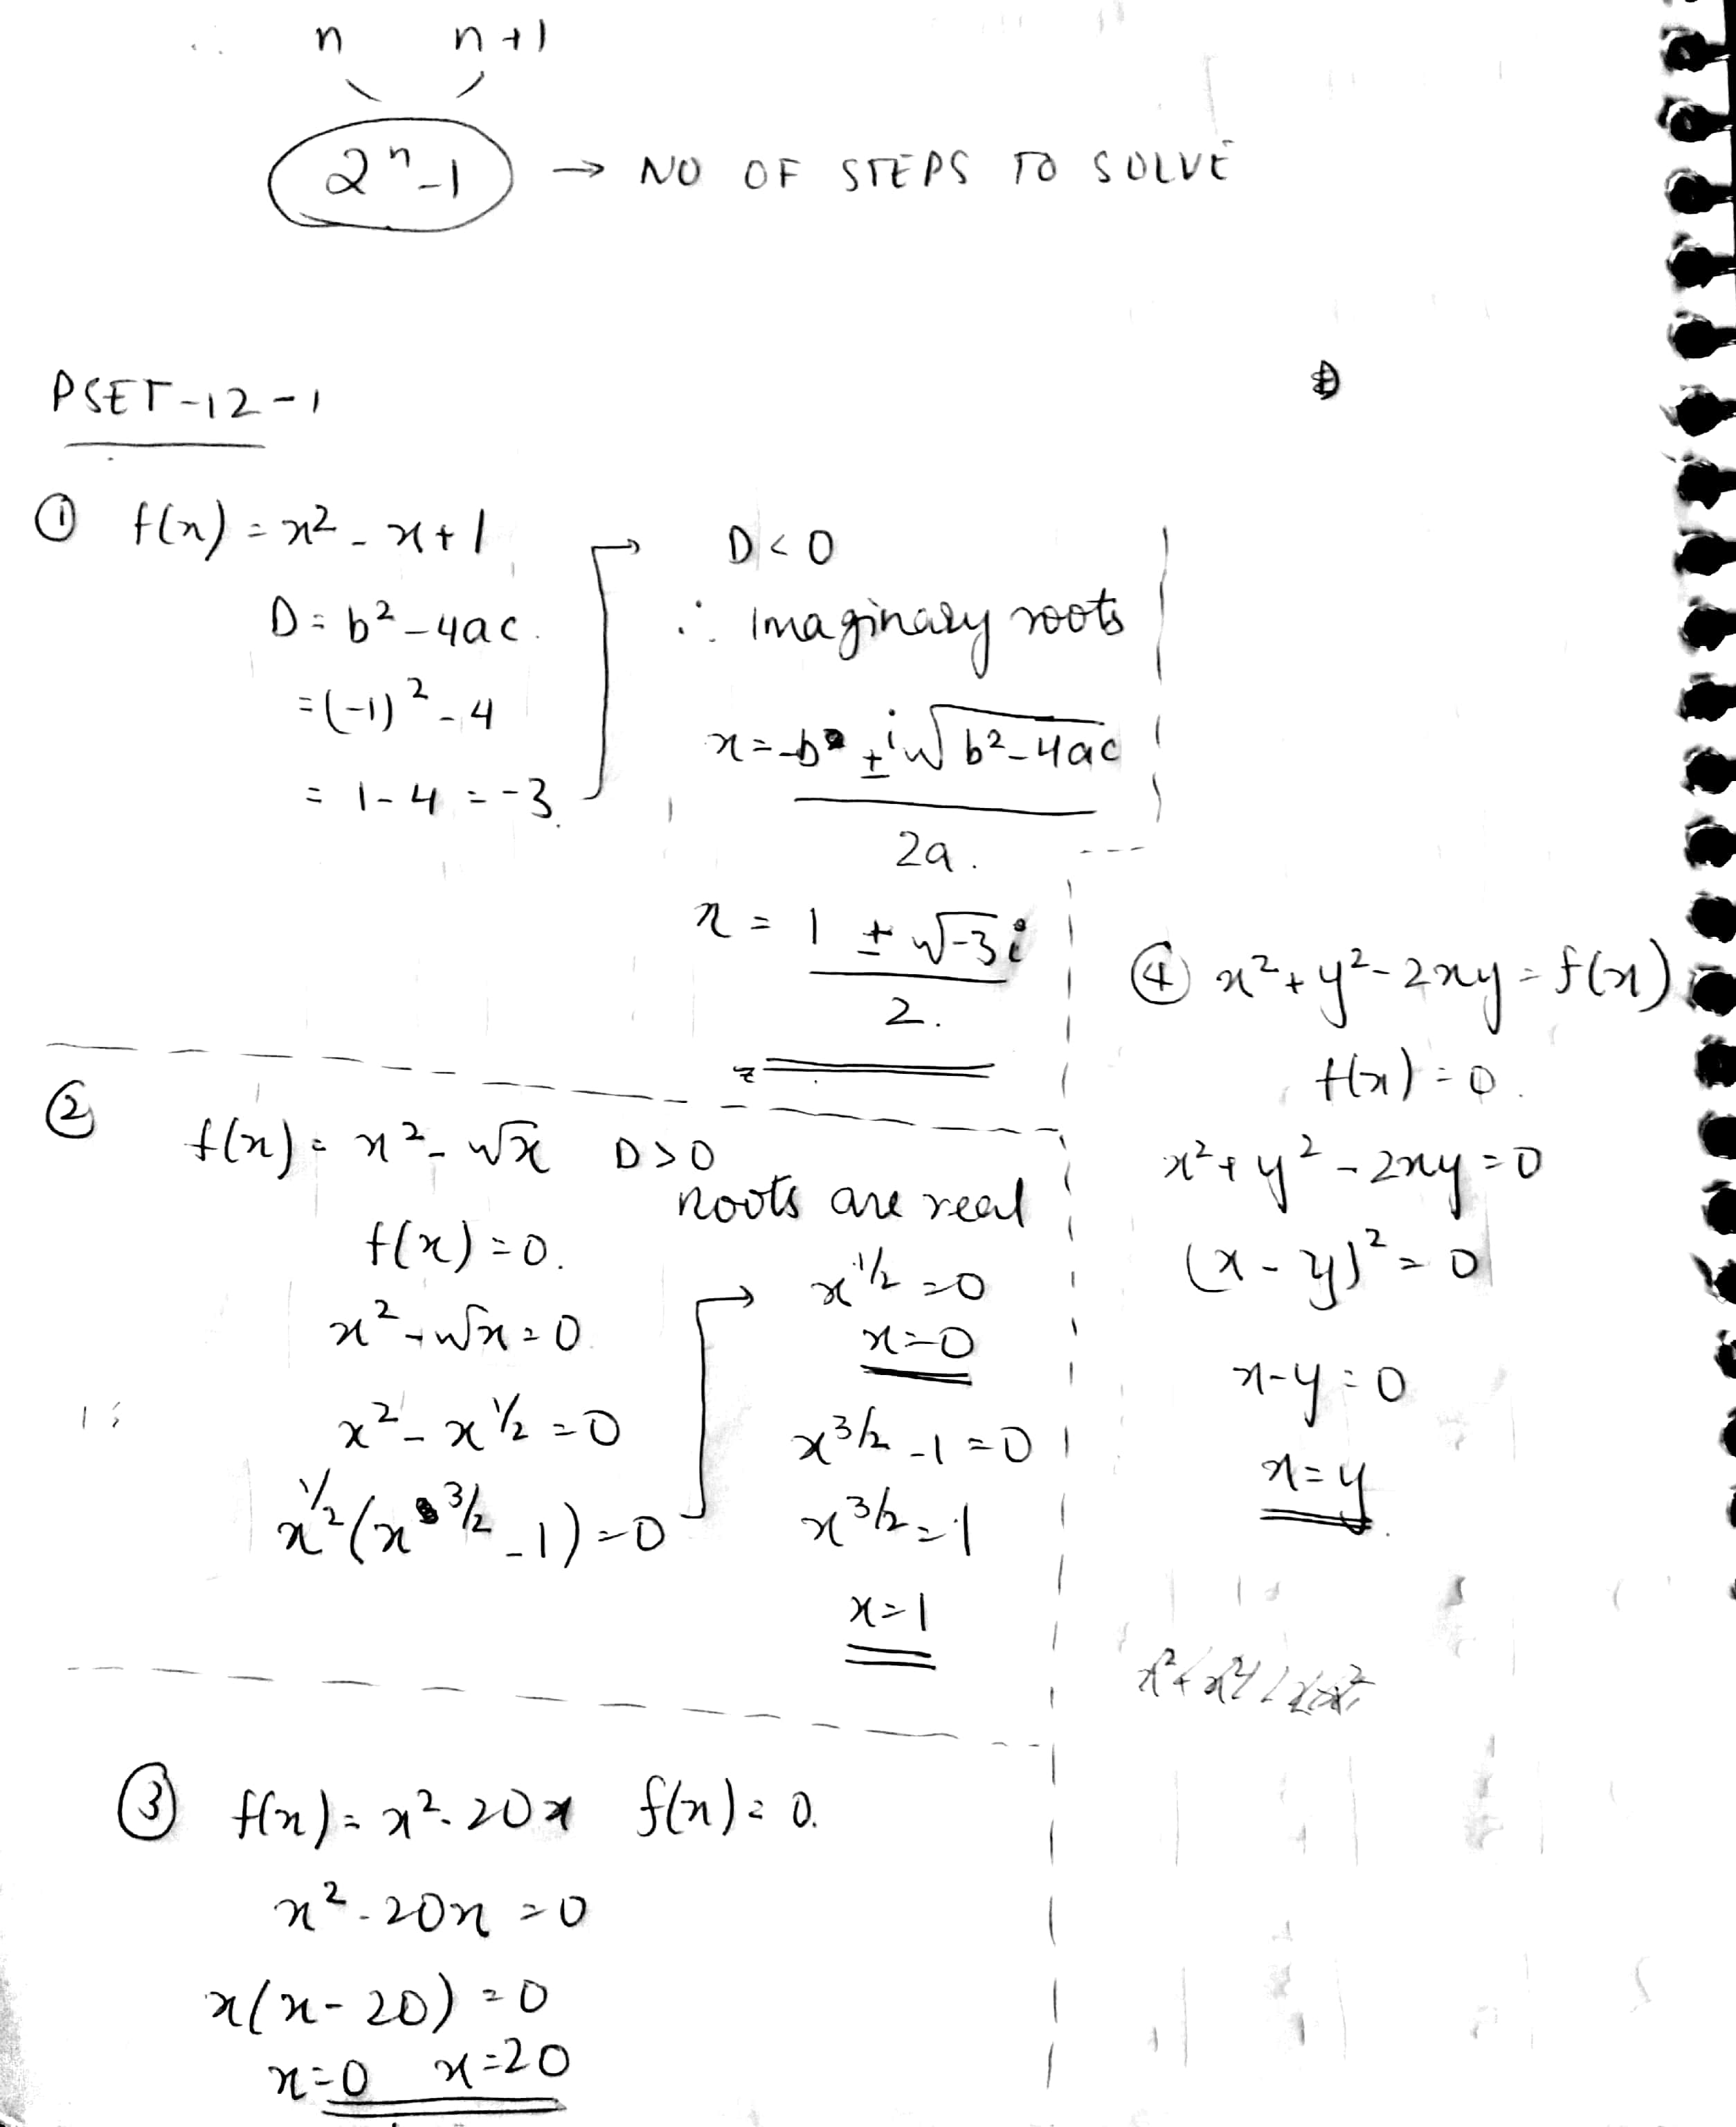 n n+1
2ⁿ-1 → NO OF STEPS TO SOLVE
PSET-12-1
① f(x) = x² - x + 1
D = b² - 4ac.
= (-1)² - 4
= 1 - 4 = -3
D < 0
∴ Imaginary roots
x = -b ± i√b² - 4ac
2a.
x = 1 ± √-3 i
2.
②
f(x) = x² - √x D > 0
Roots are real
f(x) = 0.
x² - √x = 0
x² - x^1/2 = 0
x^1/2 (x^3/2 - 1) = 0
x^1/2 = 0
x = 0
x^3/2 - 1 = 0
x^3/2 = 1
x = 1
③ f(x) = x² - 20x f(x) = 0.
x² - 20x = 0
x(x - 20) = 0
x = 0 x = 20
④ x² + y² - 2xy = f(x)
f(x) = 0.
x² + y² - 2xy = 0
(x - y)² = 0
x - y = 0
x = y